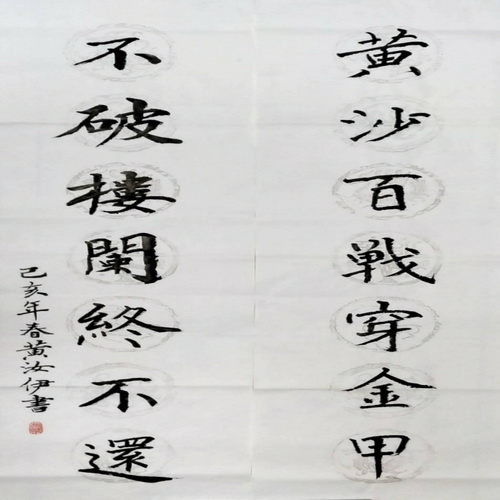 黄沙百戦穿金甲
不破樓闌終不還
己亥年春黄汝伊書